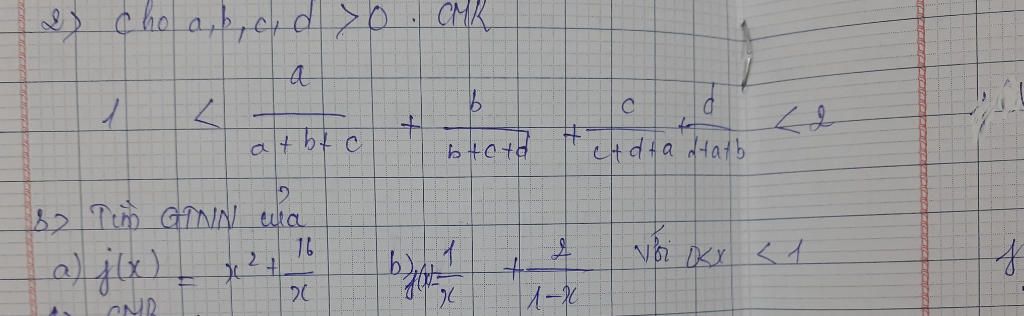 2) Cho a, b, c, d > 0 . CMR
1 < a/(a+b+c) + b/(b+c+d) + c/(c+d+a) + d/(d+a+b) < 2
3) Tìm GTNN của
a) f(x) = x² + 16/x b) f(x) = 1/x + 2/(1-x) với 0<x < 1
CMR